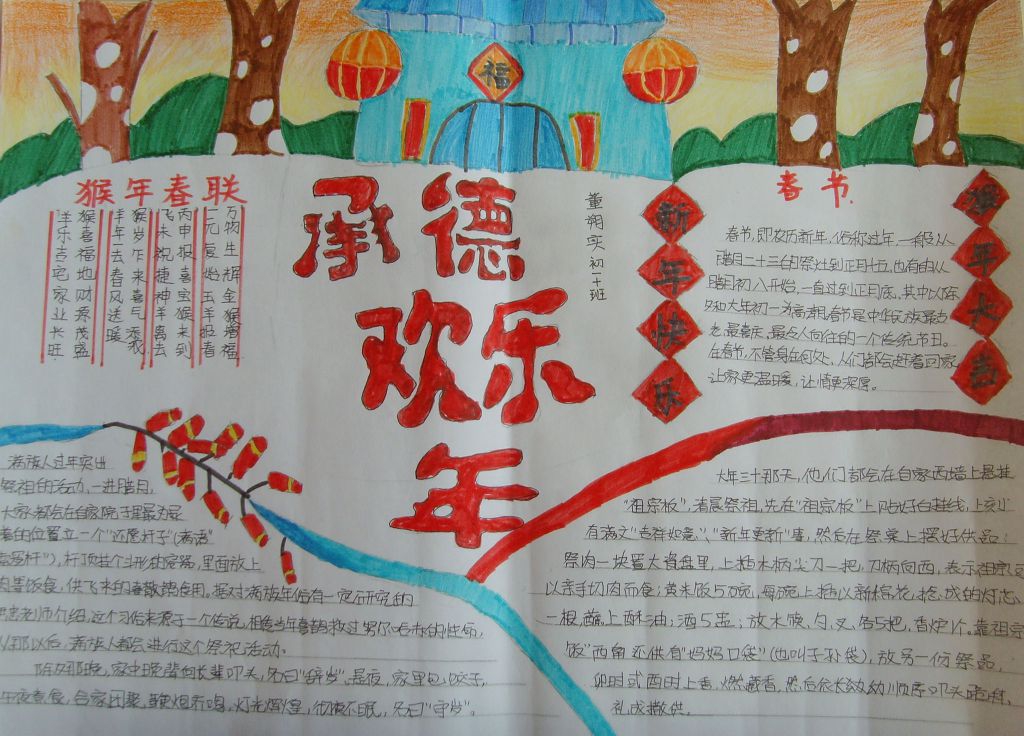 福
猴年春联
万物生辉金猴增福
一元复始玉羊报春
丙申报喜宝猴来到
飞未祝捷神羊离去
猴岁乍来喜气添
羊年一去春风送暖
猴喜福地财源茂盛
羊乐吉宅家业长旺
承德
欢乐
年
初一十班
新年快乐
春节
春节,即农历新年,俗称过年,一般从
腊月二十三的祭灶到正月十五,也有的从
腊月初八开始,一直过到正月底,其中以除
夕和大年初一为高潮,春节是中华民族最古
老、最喜庆、最令人向往的一个传统节日。
在春节,不管身在何处,人们都会赶着回家
让家更温暖,让情更深厚。
猴年大吉
满族人过年突出
祭祖的活动,一进腊月,
大家都会在自家院子里最为显
着的位置立一个"还愿杆子"(满语
杆"),杆顶挂个斗形的容器,里面放上
肉等饭食,供飞来的喜鹊 食用。据对满族年俗有一定研究的
老师介绍,这个习俗来源于一个传说,相传当年喜鹊救过努尔哈赤的性命,
从那以后,满族人都会进行这个祭祀活动。
除夕那晚,家中晚辈向长辈叩头,名曰"辞岁"。是夜,家里包饺子,
午夜煮食,合家团聚,鞭炮齐鸣,灯光辉煌,彻夜不眠,名曰"守岁"。
大年三十那天,他们都会在自家西墙上悬挂
"祖宗板",清晨祭祖,先在"祖宗板"上贴好白挂线,上
有满文"吉祥如意"、"新年更新"等,然后在祭桌上摆好供品:
祭肉一块置大 盘里,上插木柄尖刀一把,刀柄向西,表示祖宗
以亲手切肉而食;黄米饭5碗,每碗上插以新棉花捻成的灯芯
一根,蘸上酥油;酒5盅;放木筷、勺、叉各5把,香炉1个。靠祖宗
板"西角还供有"妈妈口袋"(也叫子孙袋),放另一份祭品,
卯时或酉时上香,燃藏香,然后依长幼顺序叩头
礼成撤供。